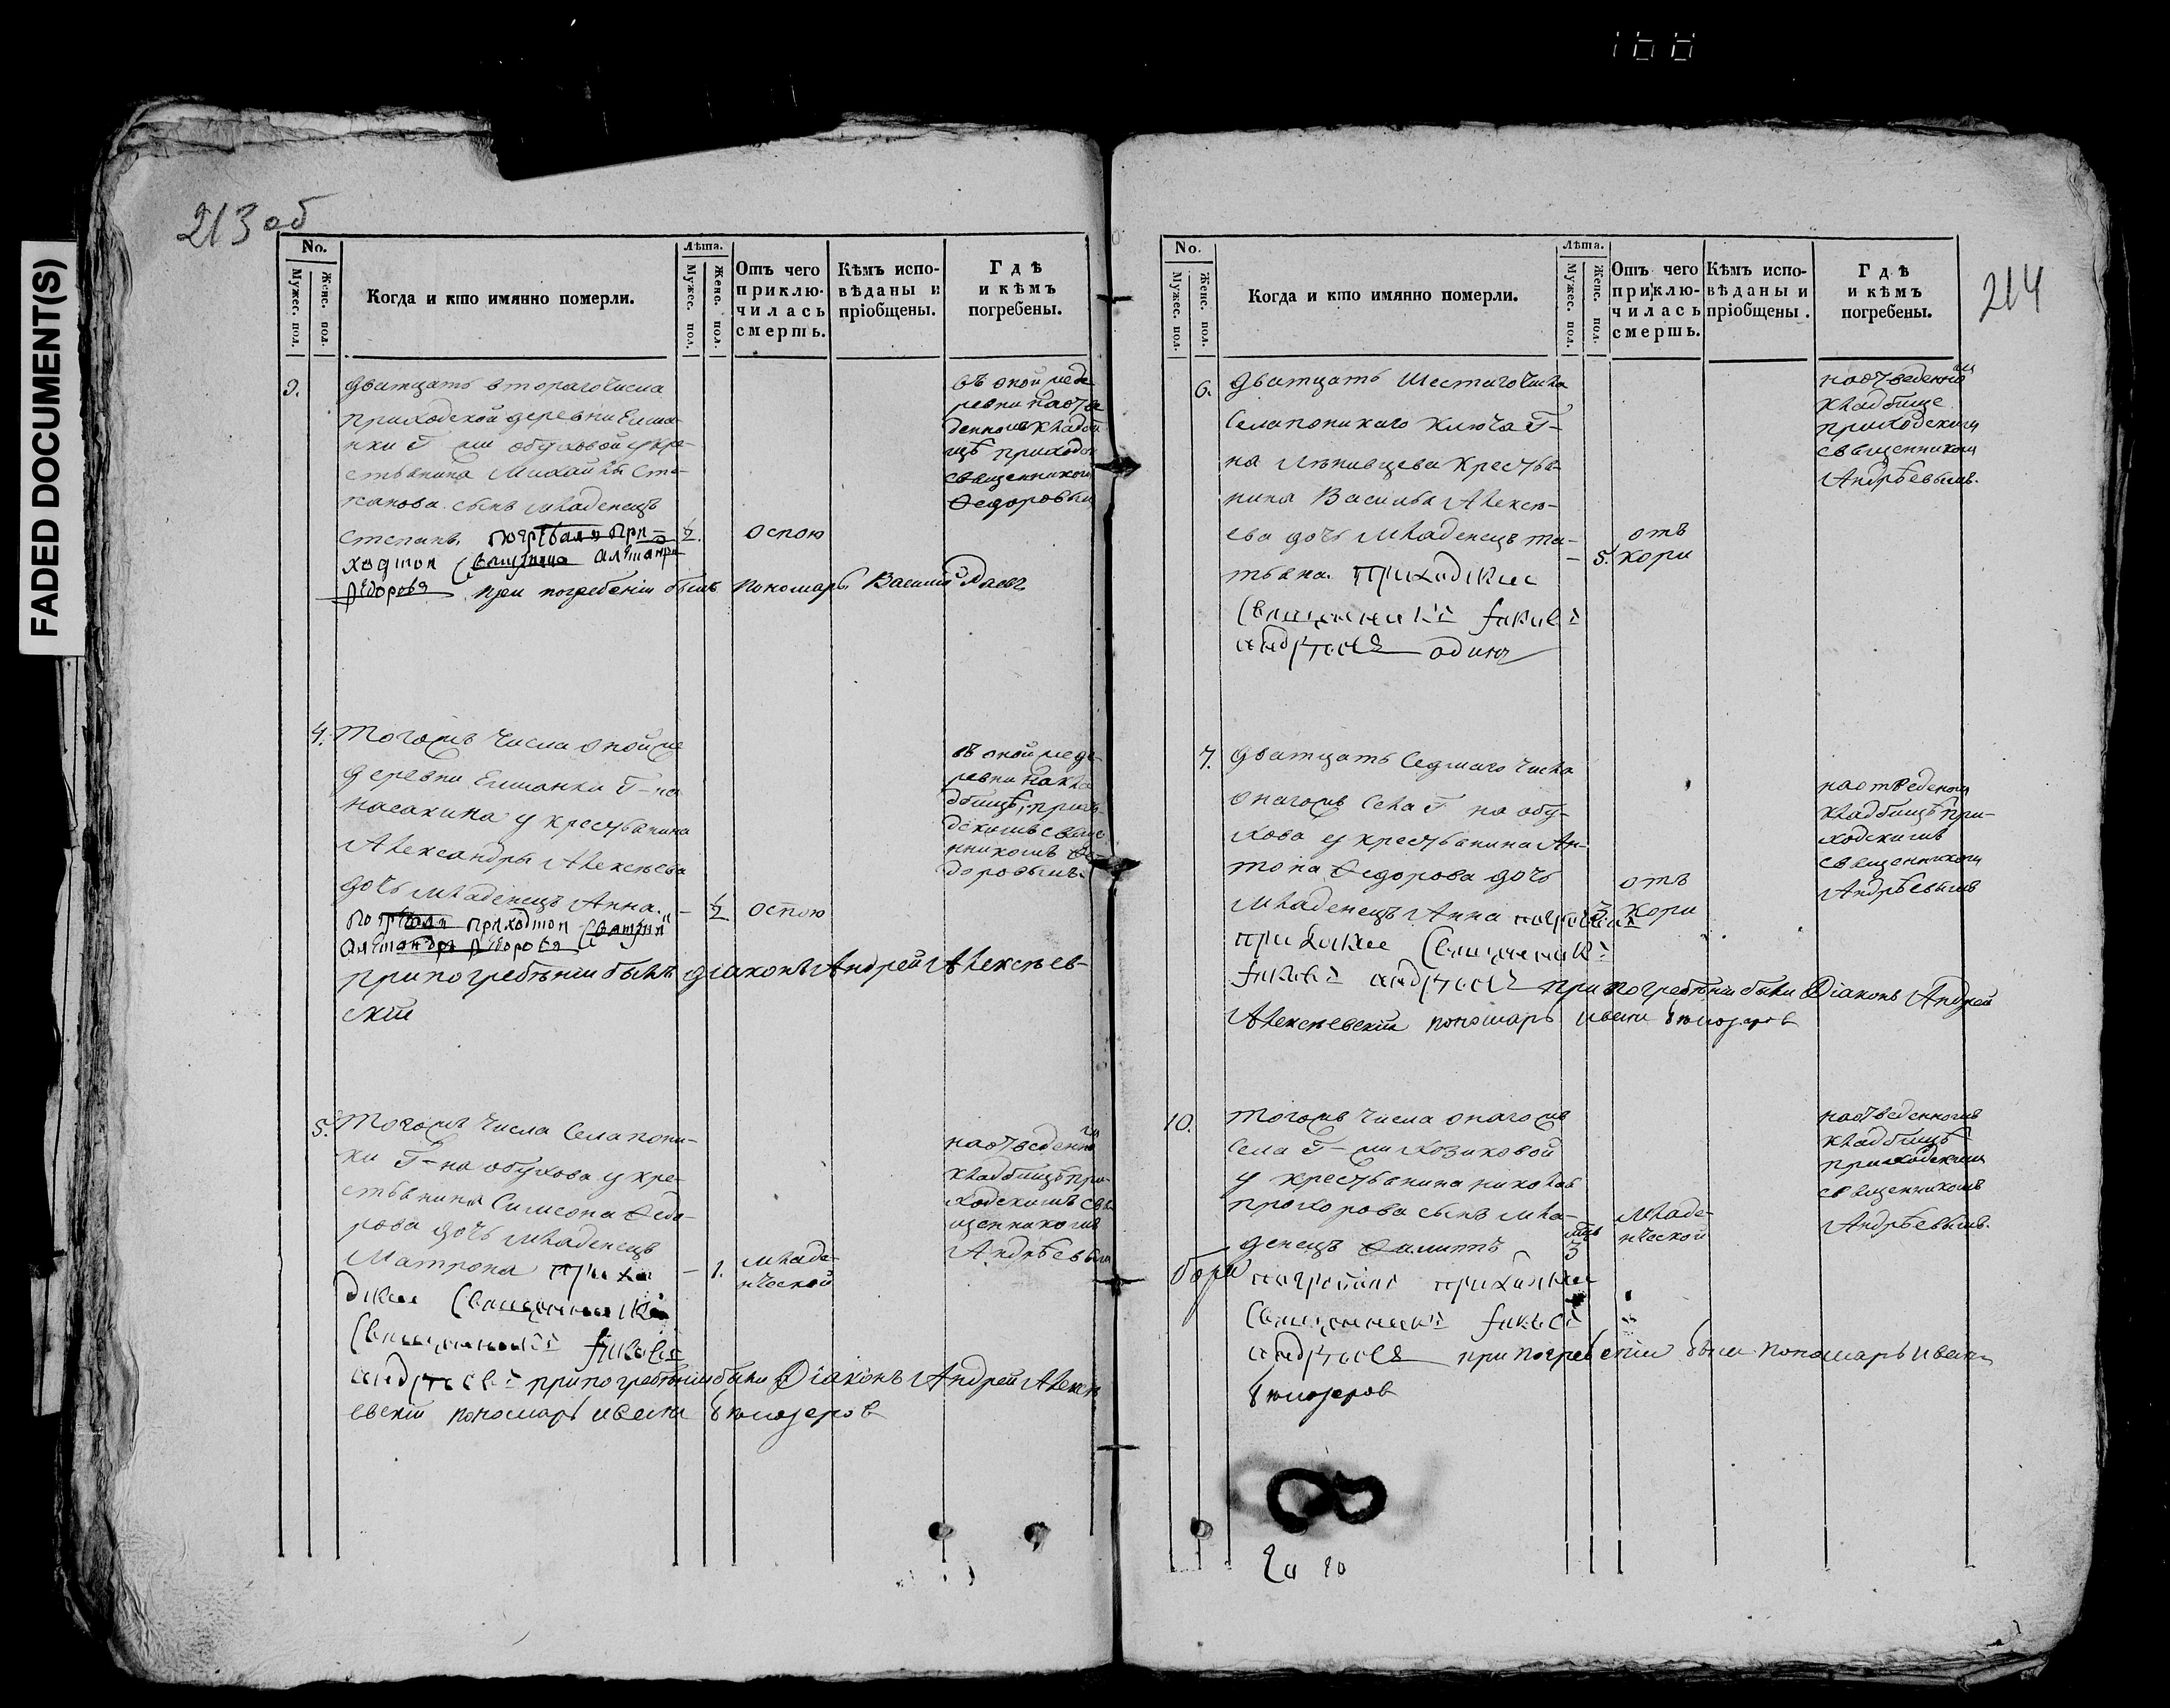 166
FADED DOCUMENT(S)
213 об
No.
Мужес. пол.
Женс. пол.
Когда и кто имянно померли.
Лѣта.
Мужес. пол.
Женс. пол.
Отъ чего
приклю-
чилась
смерть.
Кѣмъ испо-
вѣданы и
пріобщены.
Гдѣ
и кѣмъ
погребены.
9.
дватцать втораго числа
приходской деревни Елша-
нки Г жи обуховой у кре-
стьянина Михайлы Сте-
панова сынъ младенецъ
Степанъ. погребалъ при-
ходской священникъ
Федоровъ при погребеніи былъ пономарь Василий
½.
оспою
въ оной же де
ревни на отве
денномъ кладби
щѣ приходск
священникомъ
Ѳедоровым
4.
Тогожъ числа оной же
деревни Елшанки Г-на
насакина у крестьянина
Александры Алексѣева
дочь младенецъ Анна.
погребалъ приходской священ
Федоровъ
при погребѣніи былъ діаконъ Андрей Алексѣев-
скій
- ½
оспою
въ оной же де
ревни на кла
дбищѣ, прихо
дскимъ свяще
нникомъ Ѳе-
доровымъ.
5.
Тогожъ числа Села пони-
ки Г-на обухова у кре-
стьянина Симеона Ѳедо-
рова дочь младенецъ
Матрона прихо
дские священникъ
священникъ
андреевъ при погребѣніи были Діаконъ Андрей Алексѣ
евскій пономарь
- 1.
младе-
нческой
на отведенно
мъ
кладбищѣ при-
ходскимъ свя
щенникомъ
Андрѣевым
214
No.
Мужес. пол.
Женс. пол.
Когда и кто имянно померли.
Лѣта.
Мужес. пол.
Женс. пол.
Отъ чего
приклю-
чилась
смерть.
Кѣмъ испо-
вѣданы и
пріобщены.
Гдѣ
и кѣмъ
погребены.
6.
дватцать шестаго числа
Села поникаго ключа Г-
на крестья-
нина Василья Алексѣ-
ева дочь младенецъ та-
тьяна. приходские
священникъ
андреевъ один
- 5.
отъ
кори
на отведенно
мъ
кладбище
приходским
священником
Андрѣевымъ.
7.
дватцать седмаго числа
онагожъ Села Г на обу-
хова у крестьянина Ан-
тона Ѳедорова дочь
младенецъ Анна погребали
приходские священникъ
андреевъ при погребѣніи были Діаконъ Андрей
Алексѣевскій пономарь
3.
отъ
кори
на отведеном
кладбищѣ при-
ходскимъ
священником
Андрѣевымъ
10.
тогожъ числа онагожъ
Села Г-жи Козиковой
у крестьянина николая
прохорова сынъ мла-
денецъ Ѳилиппъ
погребали приходские
священникъ
андреевъ при погребеніи были пономарь
3
младе-
нческой
на отведенномъ
кладбищѣ
приходским
священникомъ
Андрѣевымъ.